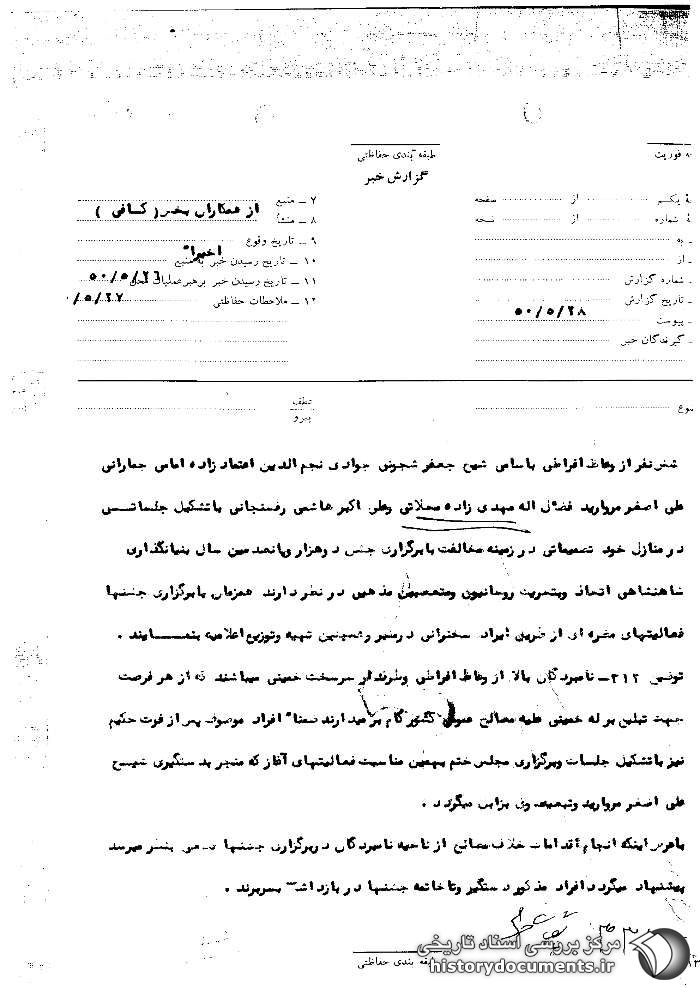 طبقه بندی حفاظتی
گزارش خبر
فوریت
صفحه از یکم
نسخه از شماره
به
از
شماره گزارش
تاریخ گزارش
۵۰/۵/۲۸
پیوست
گیرندگان خبر
۷ – منبع
۸ – منشأ
از همکاران بخبر (کافی)
۹ – تاریخ وقوع
اخیراً
۱۰ – تاریخ رسیدن خبر به منبع
۵۰/۵/۲۶
۱۱ – تاریخ رسیدن خبر برهبر عملیات محل
۵/۲۷/
۱۲ – ملاحظات حفاظتی
عطف
پیرو
شش نفر از وعاظ افراطی باسامی شیخ جعفر شجونی جوادی نجم الدین اعتماد زاده امامی جمارانی
علی اصغر مروارید فضل اله مهدی زاده محلاتی وعلی اکبر هاشمی رفسنجانی با تشکیل جلساتی
در منازل خود تصمیماتی در زمینه مخالفت با برگزاری جشن دو هزار و پانصدمین سال بنیانگذاری
شاهنشاهی اتخاذ وبتحریک روحانیون ومتعصبین مذهبی در نظر دارند همزمان با برگزاری جشنها
فعالیتهای مضره ای از طریق ایراد سخنرانی در منبر و همچنین تهیه وتوزیع اعلامیه بنمایند .
توضیح ۳۱۲– نامبردگان بالا از وعاظ افراطی وطرفدار سرسخت خمینی میباشند که از هر فرصت
جهت تبلیغ بر له خمینی علیه مصالح عمومی کشور گام بر میدارند ضمناً افراد موصوف پس از فوت حکیم
نیز با تشکیل جلسات وبرگزاری مجلس ختم بهمین مناسبت فعالیتهای آغاز که منجر بدستگیری شیخ
علی اصغر مروارید وتبعید وی بزابل میگردد .
بافرض اینکه انجام اقدامات خلاف مصالح از ناحیه نامبردگان در برگزاری جشنها بنظر میرسد
پیشنهاد میگردد افراد مذکور دستگیر وتا خاتمه جشنها در بازداشت بسر برند .
طبقه بندی حفاظتی
مرکز بررسی اسناد تاریخی
historydocuments.ir